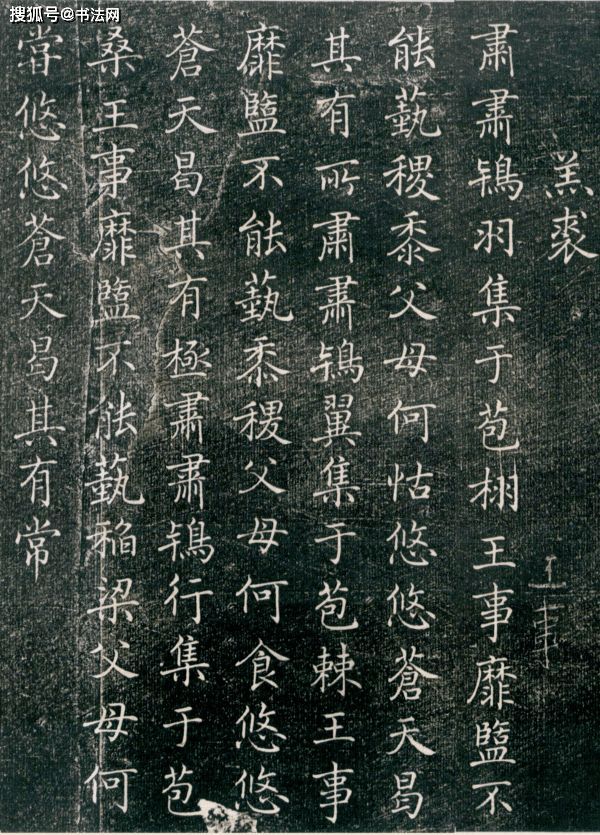 搜狐号@书法网
羔裘
王事
肅肅鴇羽集于苞栩王事靡盬不
能蓺稷黍父母何怙悠悠蒼天曷
其有所肅肅鴇翼集于苞棘王事
靡盬不能蓺黍稷父母何食悠悠
蒼天曷其有極肅肅鴇行集于苞
桑王事靡盬不能蓺稻梁父母何
甞悠悠蒼天曷其有常